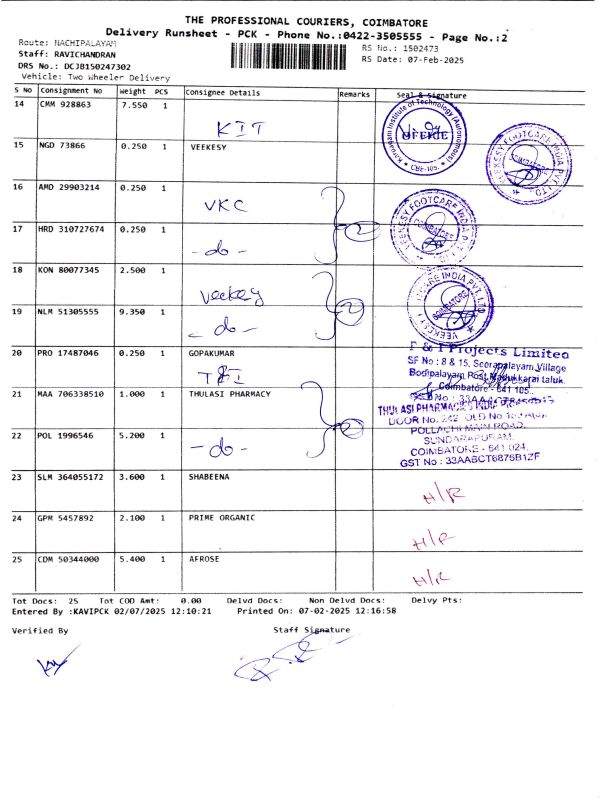 THE PROFESSIONAL COURIERS, COIMBATORE
Delivery Runsheet - PCK - Phone No.:0422-3505555 - Page No.:2
Route: NACHIPALAYAM
Staff: RAVICHANDRAN
DRS No.: DCJB150247302
Vehicle: Two Wheeler Delivery
RS No.: 1502473
RS Date: 07-Feb-2025
S No Consignment No Weight PCS Consignee Details Remarks Seal & Signature
14 CMM 928863 7.550 1
KIT
Karpagam Institute of Technology (Autonomous)
OFFICE
CBE-105.
15 NGD 73866 0.250 1 VEEKESY
VEEKESY FOOTCARE INDIA PVT. LTD
COIMBATORE
16 AMD 29903214 0.250 1
VKC
VEEKESY FOOTCARE INDIA PVT. LTD
COIMBATORE
17 HRD 310727674 0.250 1
-do-
2
18 KON 80077345 2.500 1
Veekey
COIMBATORE
19 NLM 51305555 9.350 1
-do-
2
20 PRO 17487046 0.250 1 GOPAKUMAR
T&I
Projects Limited
SF No : 8 & 15, Seerapalayam Village
Bodipalayam Post, Madukkarai taluk.
Coimbatore - 641 105.
21 MAA 706338510 1.000 1 THULASI PHARMACY
THULASI PHARMACIES INDIA
DOOR No. 242, OLD No.
POLLACHI MAIN ROAD,
SUNDARAPURAM,
COIMBATORE - 641 024
GST No : 33AABCT6876B1ZF
22 POL 1996546 5.200 1
-do-
2
23 SLM 364055172 3.600 1 SHABEENA
H/R
24 GPM 5457892 2.100 1 PRIME ORGANIC
H/R
25 CDM 50344000 5.400 1 AFROSE
H/R
Tot Docs: 25 Tot COD Amt: 0.00 Delvd Docs: Non Delvd Docs: Delvy Pts:
Entered By :KAVIPCK 02/07/2025 12:10:21 Printed On: 07-02-2025 12:16:58
Verified By Staff Signature